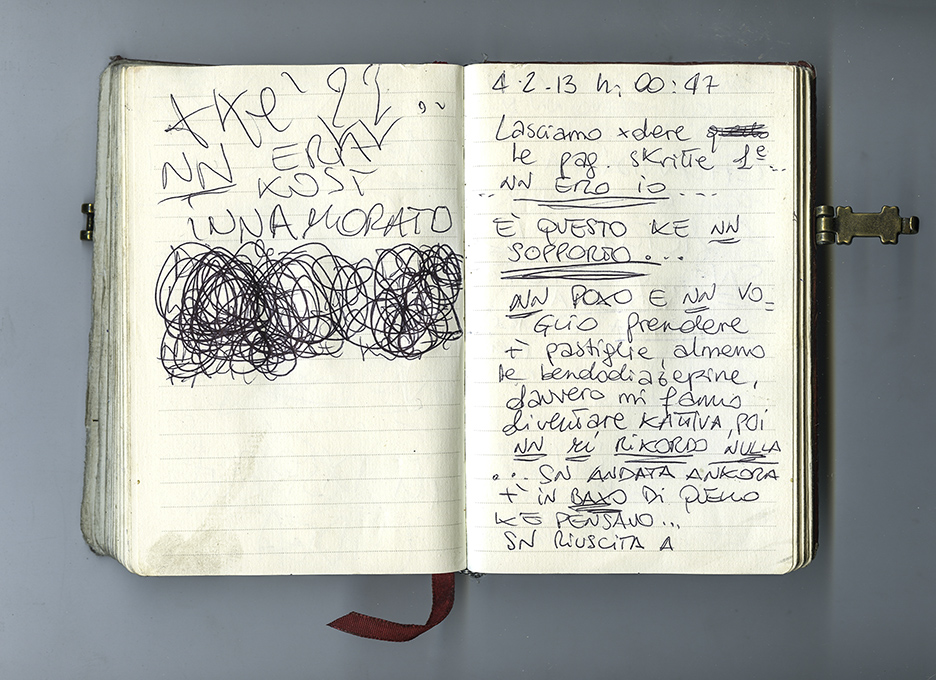 NN ERAI
KOSÌ
INNAMORATO
4.2.13 h, 00:47
Lasciamo xdere
le pag. skritte 1ᵉ...
..NN ERO io....
È QUESTO KE NN
SOPPORTO...
NN POXO E NN VO-
GLIO prendere
+ pastiglie, almeno
le bendodiazepine,
davvero mi fanno
diventare KATTIVA, POI
NN RIKORDO NULLA
... SN ANDATA ANKORA
+ IN BAXO DI QUELLO
KE PENSAVO...
SN RIUSCITA A